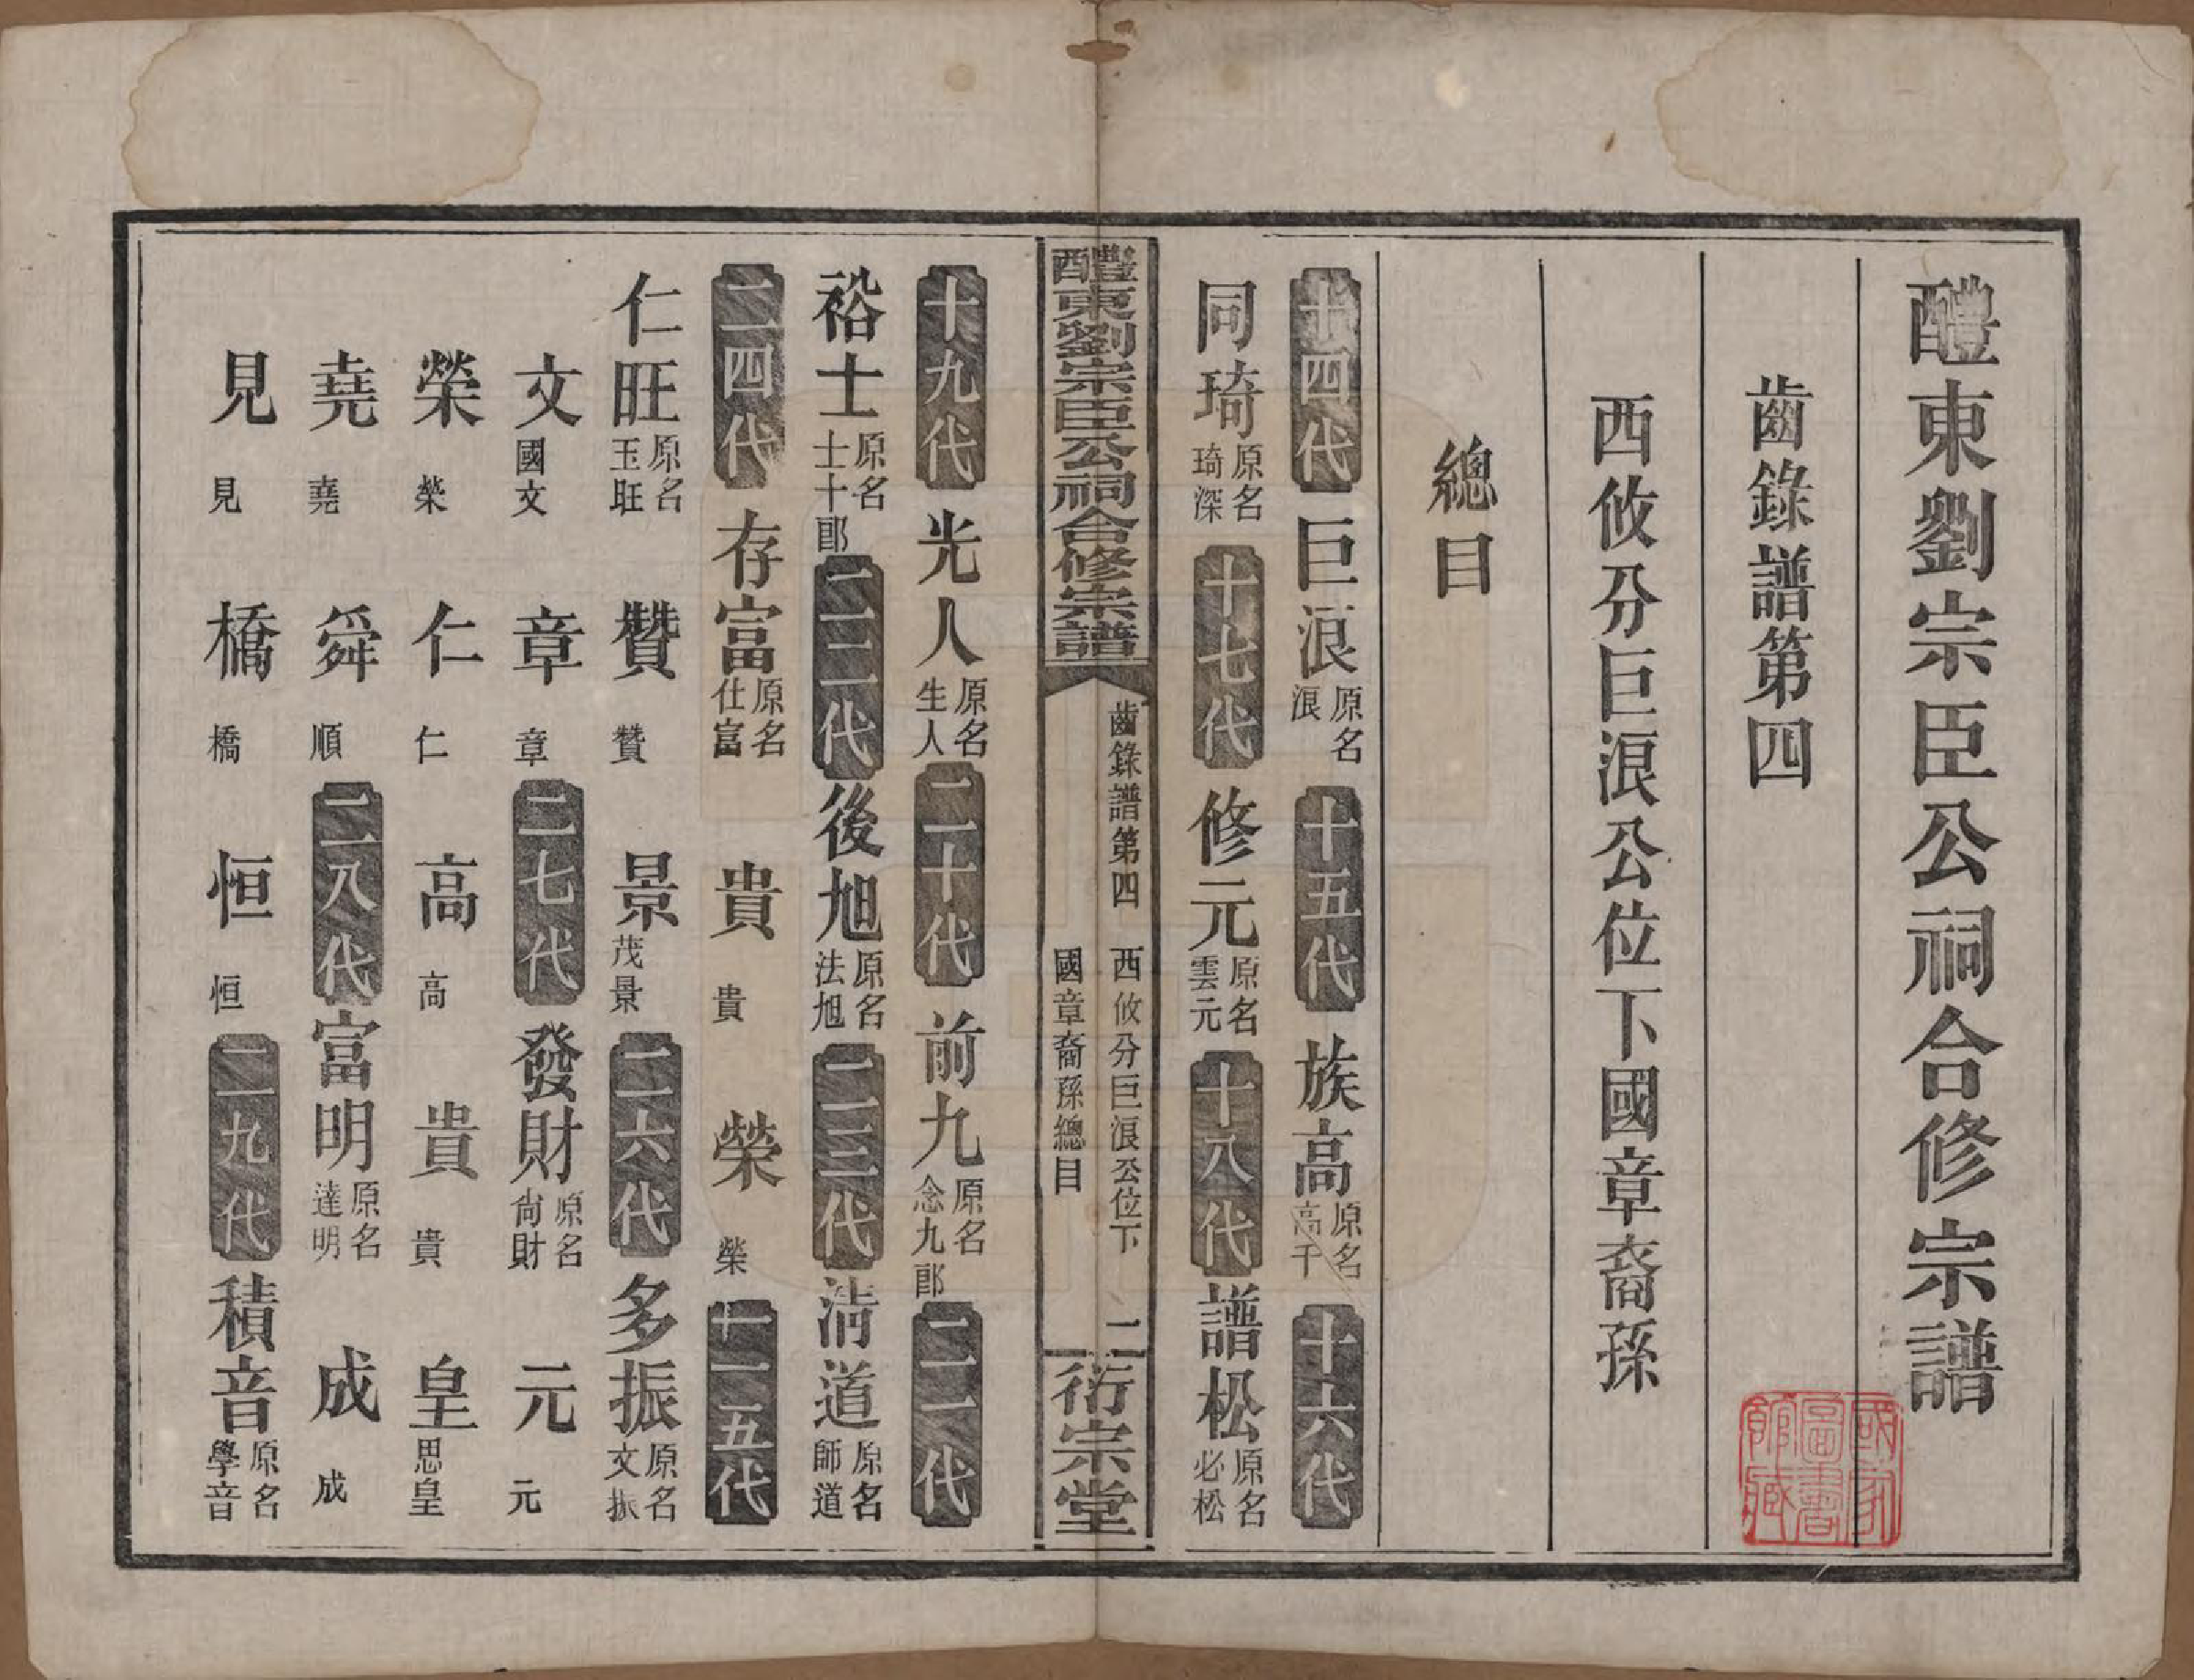 醴東劉宗臣公祠合修宗譜
齒錄譜第四
西攸分巨浪公位下國章裔孫
總目
十四代 巨浪 原名浪 十五代 族高 原名高千 十六代
同琦 原名琦深 十七代 修元 原名雲元 十八代 譜松 原名必松
醴東劉宗臣公祠合修宗譜 齒錄譜第四 西攸分巨浪公位下國章裔孫總目 一 衍宗堂
十九代 光人 原名生人 二十代 前九 原名念九郎 二一代
裕士 原名士十郎 二二代 後旭 原名法旭 二三代 清道 原名師道
二四代 存富 原名仕富 貴 貴 榮 榮 二五代
仁旺 原名玉旺 贊 贊 景 茂景 二六代 多振 原名文振
文 國文 章 章 二七代 發財 原名尙財 元 元
榮 榮 仁 仁 高 高 貴 貴 皇 思皇
堯 堯 舜 順 二八代 富明 原名達明 成 成
見 見 橋 橋 恒 恒 二九代 積音 原名學音
國家圖書館藏